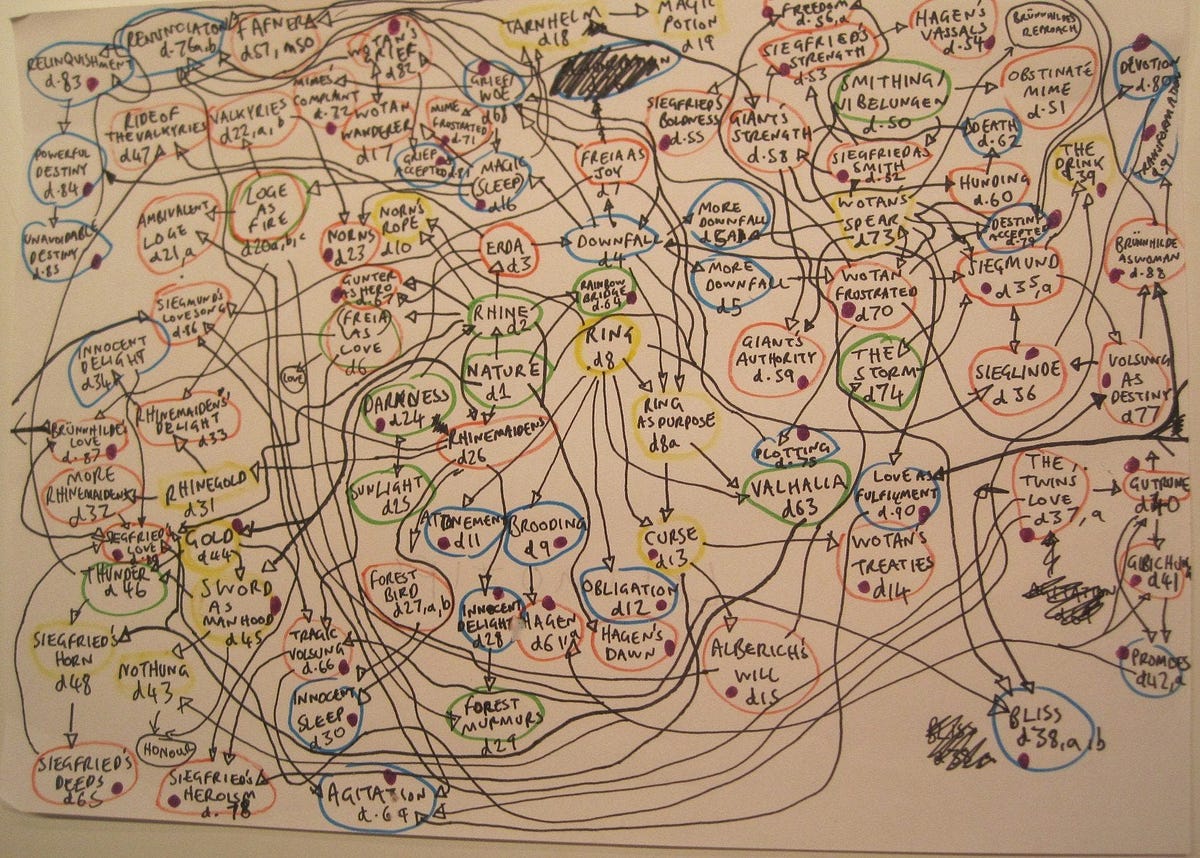 RENUNCIATION
d.76a,b
FAFNER
d51, m50
WOTAN'S
GRIEF
d82
TARNHELM
d18
MAGIC
POTION
d19
FREEDOM
d.56,a
HAGEN'S
VASSALS
d.54
BRÜNNHILDE'S
REPROACH
RELINQUISHMENT
d.83
SIEGFRIED'S
STRENGTH
d53
DEVOTION
d.80
RIDE OF
THE VALKYRIES
d47
VALKYRIES
d22,a,b
MIMES'
COMPLAINT
d.72
WOTAN
WANDERER
d17
MIME
FRUSTRATED
d.71
GRIEF/
WOE
d68
SIEGFRIED'S
BOLDNESS
d.55
GIANT'S
STRENGTH
d.58
SMITHING/
NIBELUNGEN
d.50
OBSTINATE
MIME
d.51
DEATH
d.62
POWERFUL
DESTINY
d.84
GRIEF
ACCEPTED d.81
MAGIC
(SLEEP)
d16
FREIA AS
JOY
d7
SIEGFRIED AS
SMITH
d.52
HUNDING
d.60
THE
DRINK
d39
UNAVOIDABLE
DESTINY
d.85
AMBIVALENT
LOGE
d21,a
LOGE
AS
FIRE
d20a,b,c
NORNS
d23
NORN'S
ROPE
d10
ERDA
d3
DOWNFALL
d4
MORE
DOWNFALL
d5A
WOTAN'S
SPEAR
d73
DESTINY
ACCEPTED
d.79
BRÜNNHILDE
AS WOMAN
d.88
GUNTER
AS HERO
d.67
RAINBOW
BRIDGE
d.69
MORE
DOWNFALL
d5
WOTAN
FRUSTRATED
d70
SIEGMUND
d35,a
SIEGMUND'S
LOVE SONG
d.86
(FREIA
AS
LOVE
d6
RHINE
d2
RING
d8
INNOCENT
DELIGHT
d34
LOVE
NATURE
d1
GIANT'S
AUTHORITY
d.59
THE
STORM
d74
SIEGLINDE
d36
VOLSUNG
AS
DESTINY
d77
BRÜNNHILDE'S
LOVE
d.87
RHINEMAIDENS'
DELIGHT
d33
DARKNESS
d24
RHINEMAIDENS
d26
RING
AS PURPOSE
d8a
PLOTTING
d.75
MORE
RHINEMAIDENS
d32
RHINEGOLD
d31
SUNLIGHT
d25
VALHALLA
d63
LOVE AS
FULFILMENT
d.90
THE
TWINS
LOVE
d37,a
GUTRUNE
d40
SIEGFRIED'S
LOVE
GOLD
d44
ATONEMENT
d11
BROODING
d9
CURSE
d13
WOTAN'S
TREATIES
d14
THUNDER
d46
SWORD
AS
MANHOOD
d45
FOREST
BIRD
d27,a,b
INNOCENT
DELIGHT
d28
HAGEN
OBLIGATION
d12
HAGEN'S
DAWN
GIBICHUNGS
d41
AGITATION
SIEGFRIED'S
HORN
d48
NOTHUNG
d43
TRAGIC
VOLSUNG
d.66
ALBERICH'S
WILL
d15
PROMISES
d42,a
INNOCENT
SLEEP
d30
FOREST
MURMURS
d29
BLISS
d38,a,b
HONOUR
SIEGFRIED'S
DEEDS
d65
SIEGFRIED'S
HEROISM
d.78
AGITATION
d.64